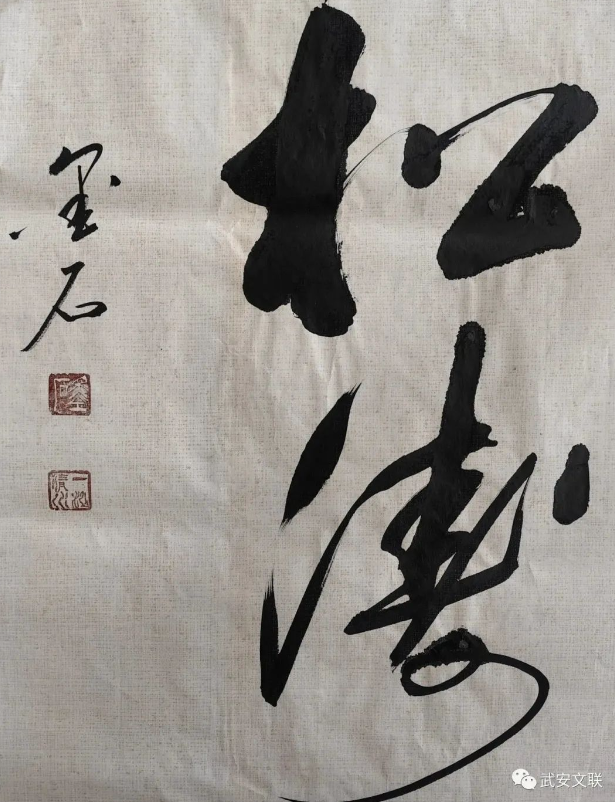 松涛
墨石
武安文联